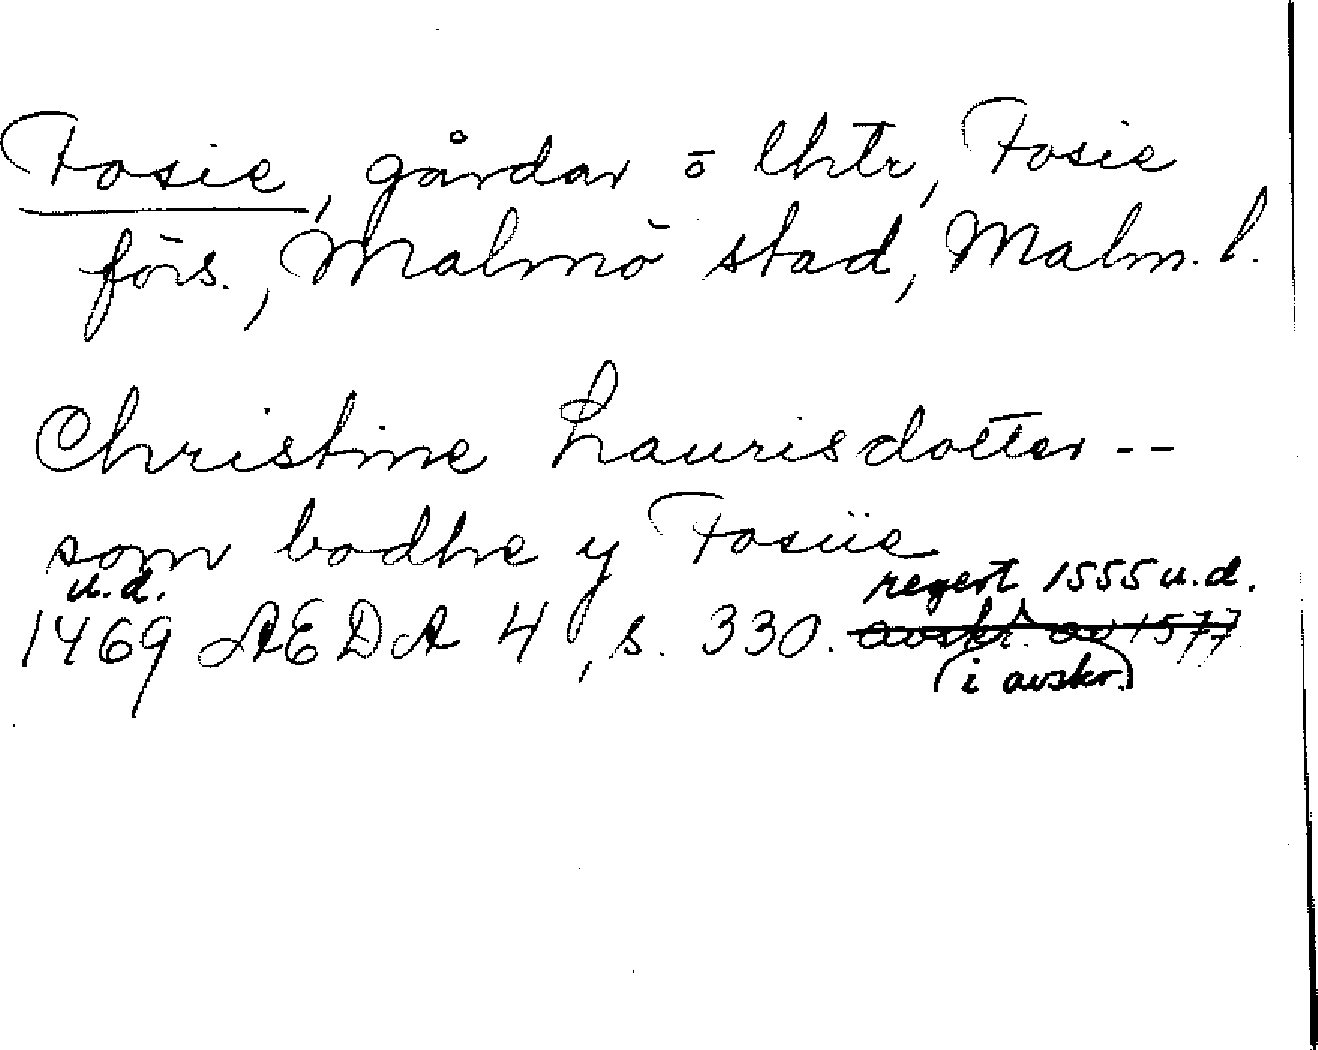 Fosie, gårdar o lhtr, Fosie
förs., Malmö stad, Malm. l.
Christine Laurisdotter --
som bodhe y Fosiie
u.d. regest 1555 u.d.
1469 AEDA 4, s. 330. avskr. av 1577
(i avskr.)